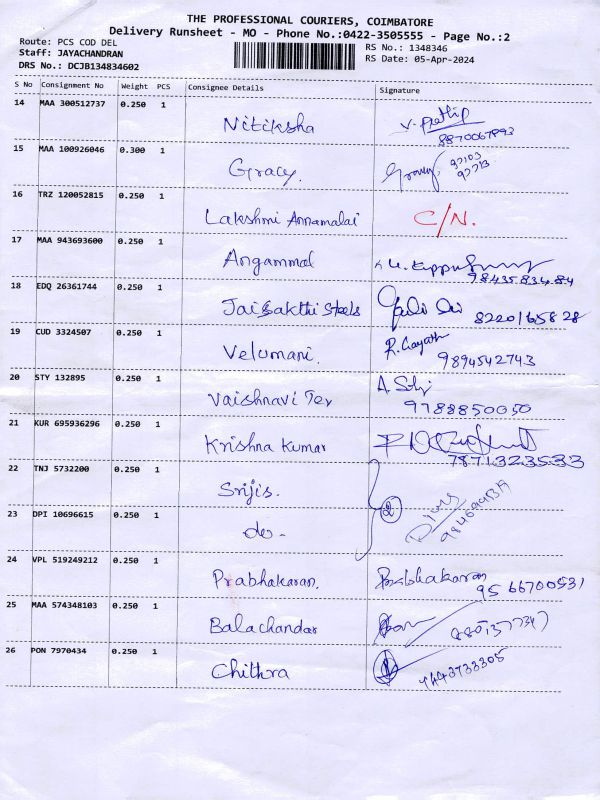 THE PROFESSIONAL COURIERS, COIMBATORE
Delivery Runsheet - MO - Phone No.:0422-3505555 - Page No.:2
Route: PCS COD DEL
RS No.: 1348346
Staff: JAYACHANDRAN
RS Date: 05-Apr-2024
DRS No.: DCJB134834602
S No Consignment No Weight PCS Consignee Details Signature
14 MAA 300512737 0.250 1
Nitiksha V. Prathip
8870067893
15 MAA 100926046 0.300 1
Gracy.
97103
97713
16 TRZ 120052815 0.250 1
Lakshmi Annamalai C/N.
17 MAA 943693600 0.250 1
Angammal
98435.834.84
18 EDQ 26361744 0.250 1
Jai Sakthi Steels 82201658 28
19 CUD 3324507 0.250 1
Velumani. R. Gayath
9894542743
20 STY 132895 0.250 1
Vaishnavi Tex
9788850050
21 KUR 695936296 0.250 1
Krishna Kumar
7871323533
22 TNJ 5732200 0.250 1
Srijis.
23 DPI 10696615 0.250 1
do. 2
24 VPL 519249212 0.250 1
Prabhakaran. Prabhakaran
95 66700531
25 MAA 574348103 0.250 1
Balachandar
26 PON 7970434 0.250 1
Chithra